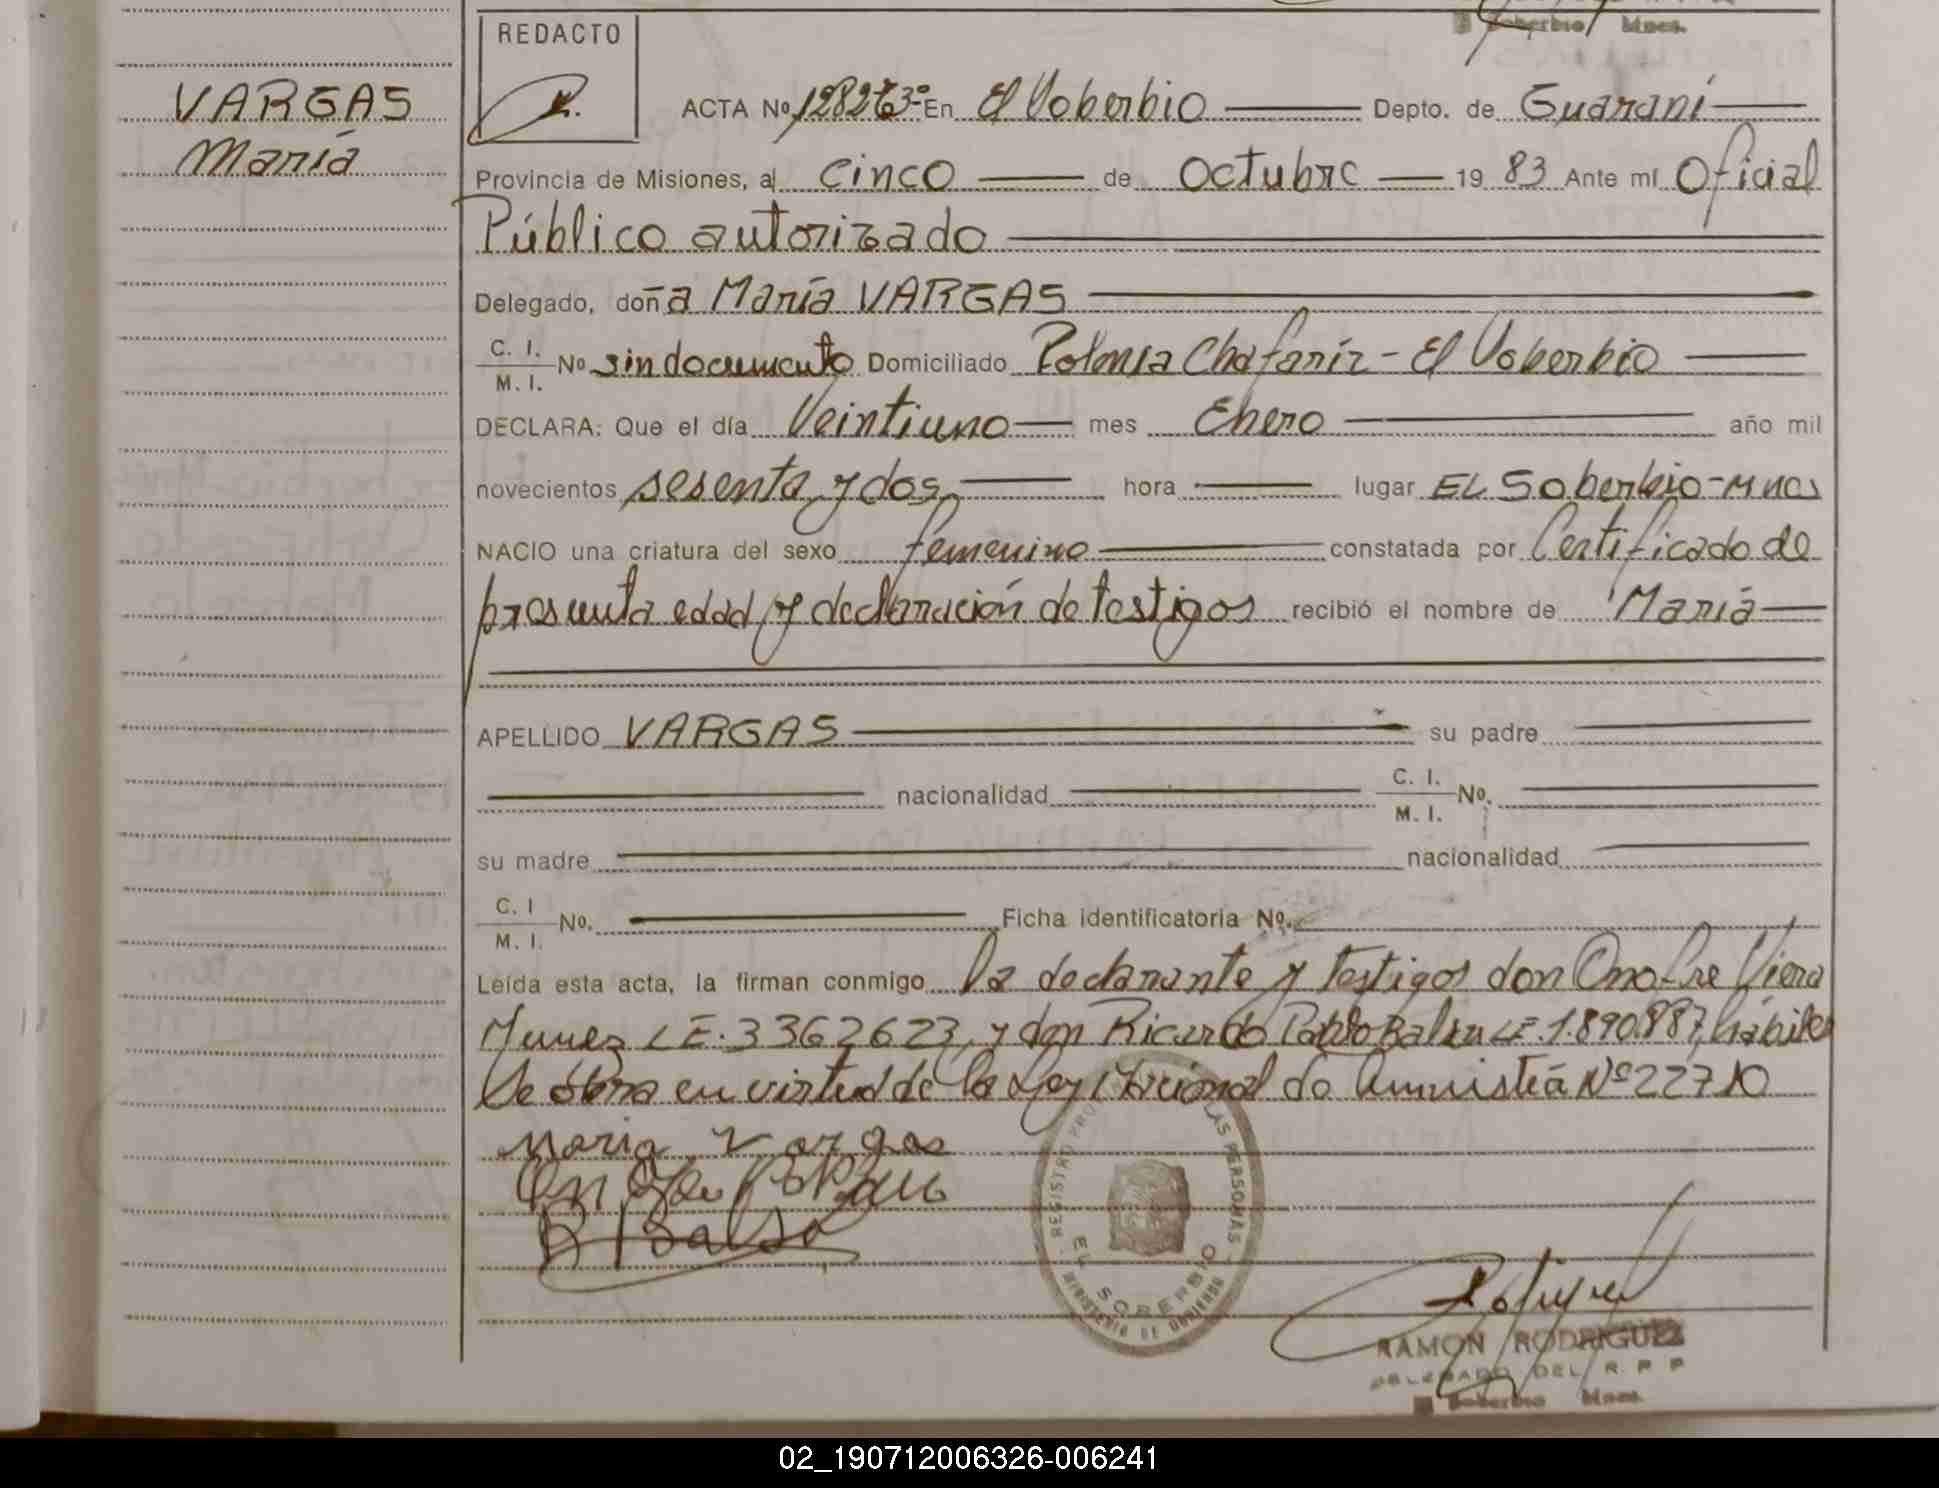 Soberbio Mnes.
REDACTO
VARGAS
María
ACTA Nº En El Soberbio Depto. de Guaraní
Provincia de Misiones, al cinco de Octubre 19 83 Ante mí Oficial
Público autorizado
Delegado, doña María VARGAS
C. I. M. I. Nº sin documento Domiciliado Polonia Chafariz - El Soberbio
DECLARA: Que el día Veintiuno mes Enero año mil
novecientos sesenta y dos hora lugar EL Soberbio - Mnes
NACIO una criatura del sexo femenino constatada por Certificado de
presunta edad y declaración de testigos recibió el nombre de María
APELLIDO VARGAS su padre
nacionalidad C. I. M. I. Nº.
su madre nacionalidad
C. I M. I. Nº. Ficha identificatoria Nº.
Leída esta acta, la firman conmigo la declarante y testigos don Onofre Viera
Nunez LE. 3362623, y don Ricardo Pablo LE. 1.890.887, hábiles
Se obra en virtud de la Ley Nacional de Amnistiá Nº 22710
Maria Vargas
REGISTRO PRO LAS PERSONAS
EL SOBERBIO
MINISTERIO DE GOBIERNO
RAMON RODRIGUEZ
DELEGADO DEL R. P. P
Soberbio Mnes.
02_190712006326-006241